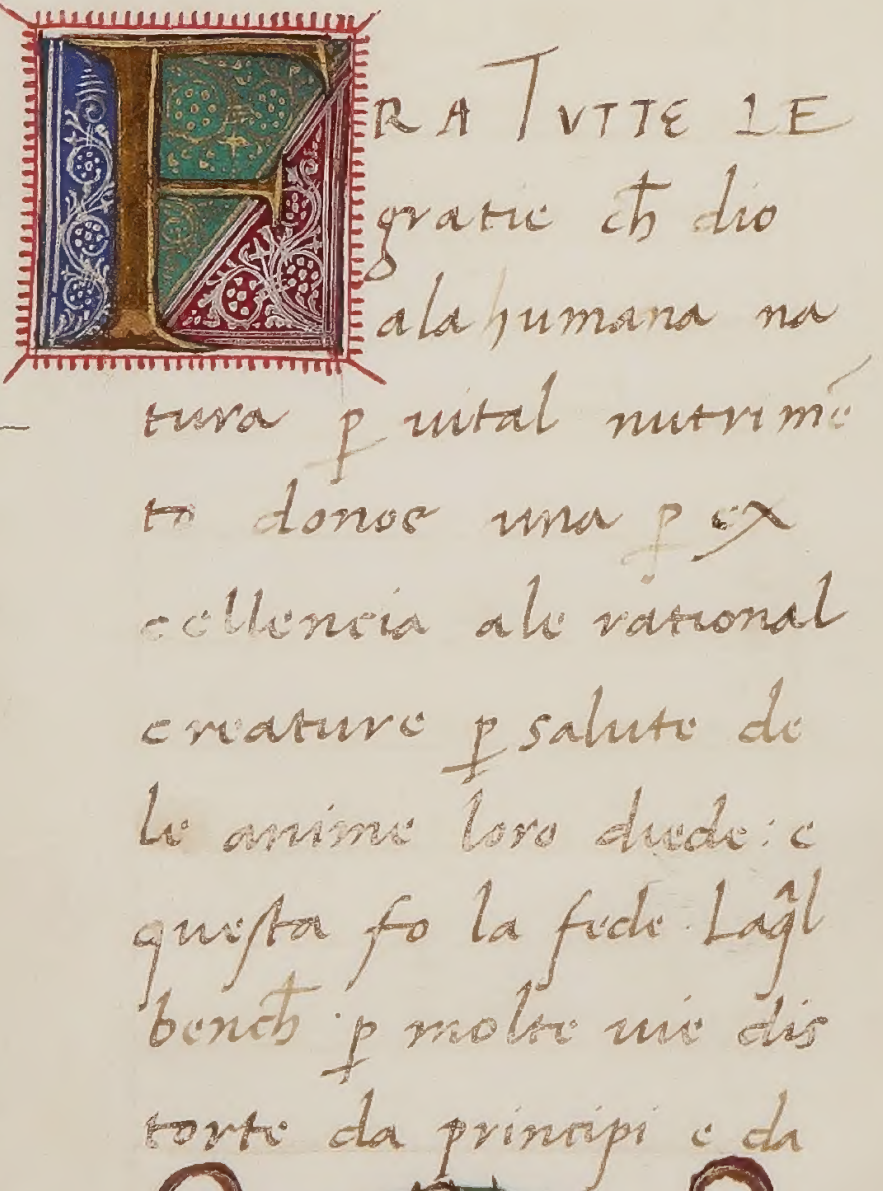 FRA TVTTE LE
gratie ch̄ dio
ala humana na
tura ꝑ uital nutrimē
to donoe una ꝑ ex
cellencia ale rational
creature ꝑ salute de
le anime loro diede: e
questa fo la fede. Laq̃l
bench̄ ꝑ molte uie dis
torte da principi e da